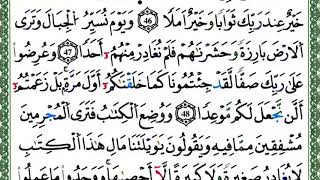 خَيْرٌ عِندَ رَبِّكَ ثَوَابًا وَخَيْرٌ أَمَلًا ٤٦ وَيَوْمَ نُسَيِّرُ الْجِبَالَ وَتَرَى
الْأَرْضَ بَارِزَةً وَحَشَرْنَاهُمْ فَلَمْ نُغَادِرْ مِنْهُمْ أَحَدًا ٤٧ وَعُرِضُوا
عَلَى رَبِّكَ صَفًّا لَّقَدْ جِئْتُمُونَا كَمَا خَلَقْنَاكُمْ أَوَّلَ مَرَّةٍ بَلْ زَعَمْتُمْ
أَلَّن نَّجْعَلَ لَكُم مَّوْعِدًا ٤٨ وَوُضِعَ الْكِتَابُ فَتَرَى الْمُجْرِمِينَ
مُشْفِقِينَ مِمَّا فِيهِ وَيَقُولُونَ يَا وَيْلَتَنَا مَالِ هَذَا الْكِتَابِ
لَا يُغَادِرُ صَغِيرَةً وَلَا كَبِيرَةً إِلَّا أَحْصَاهَا وَوَجَدُوا مَا عَمِلُوا